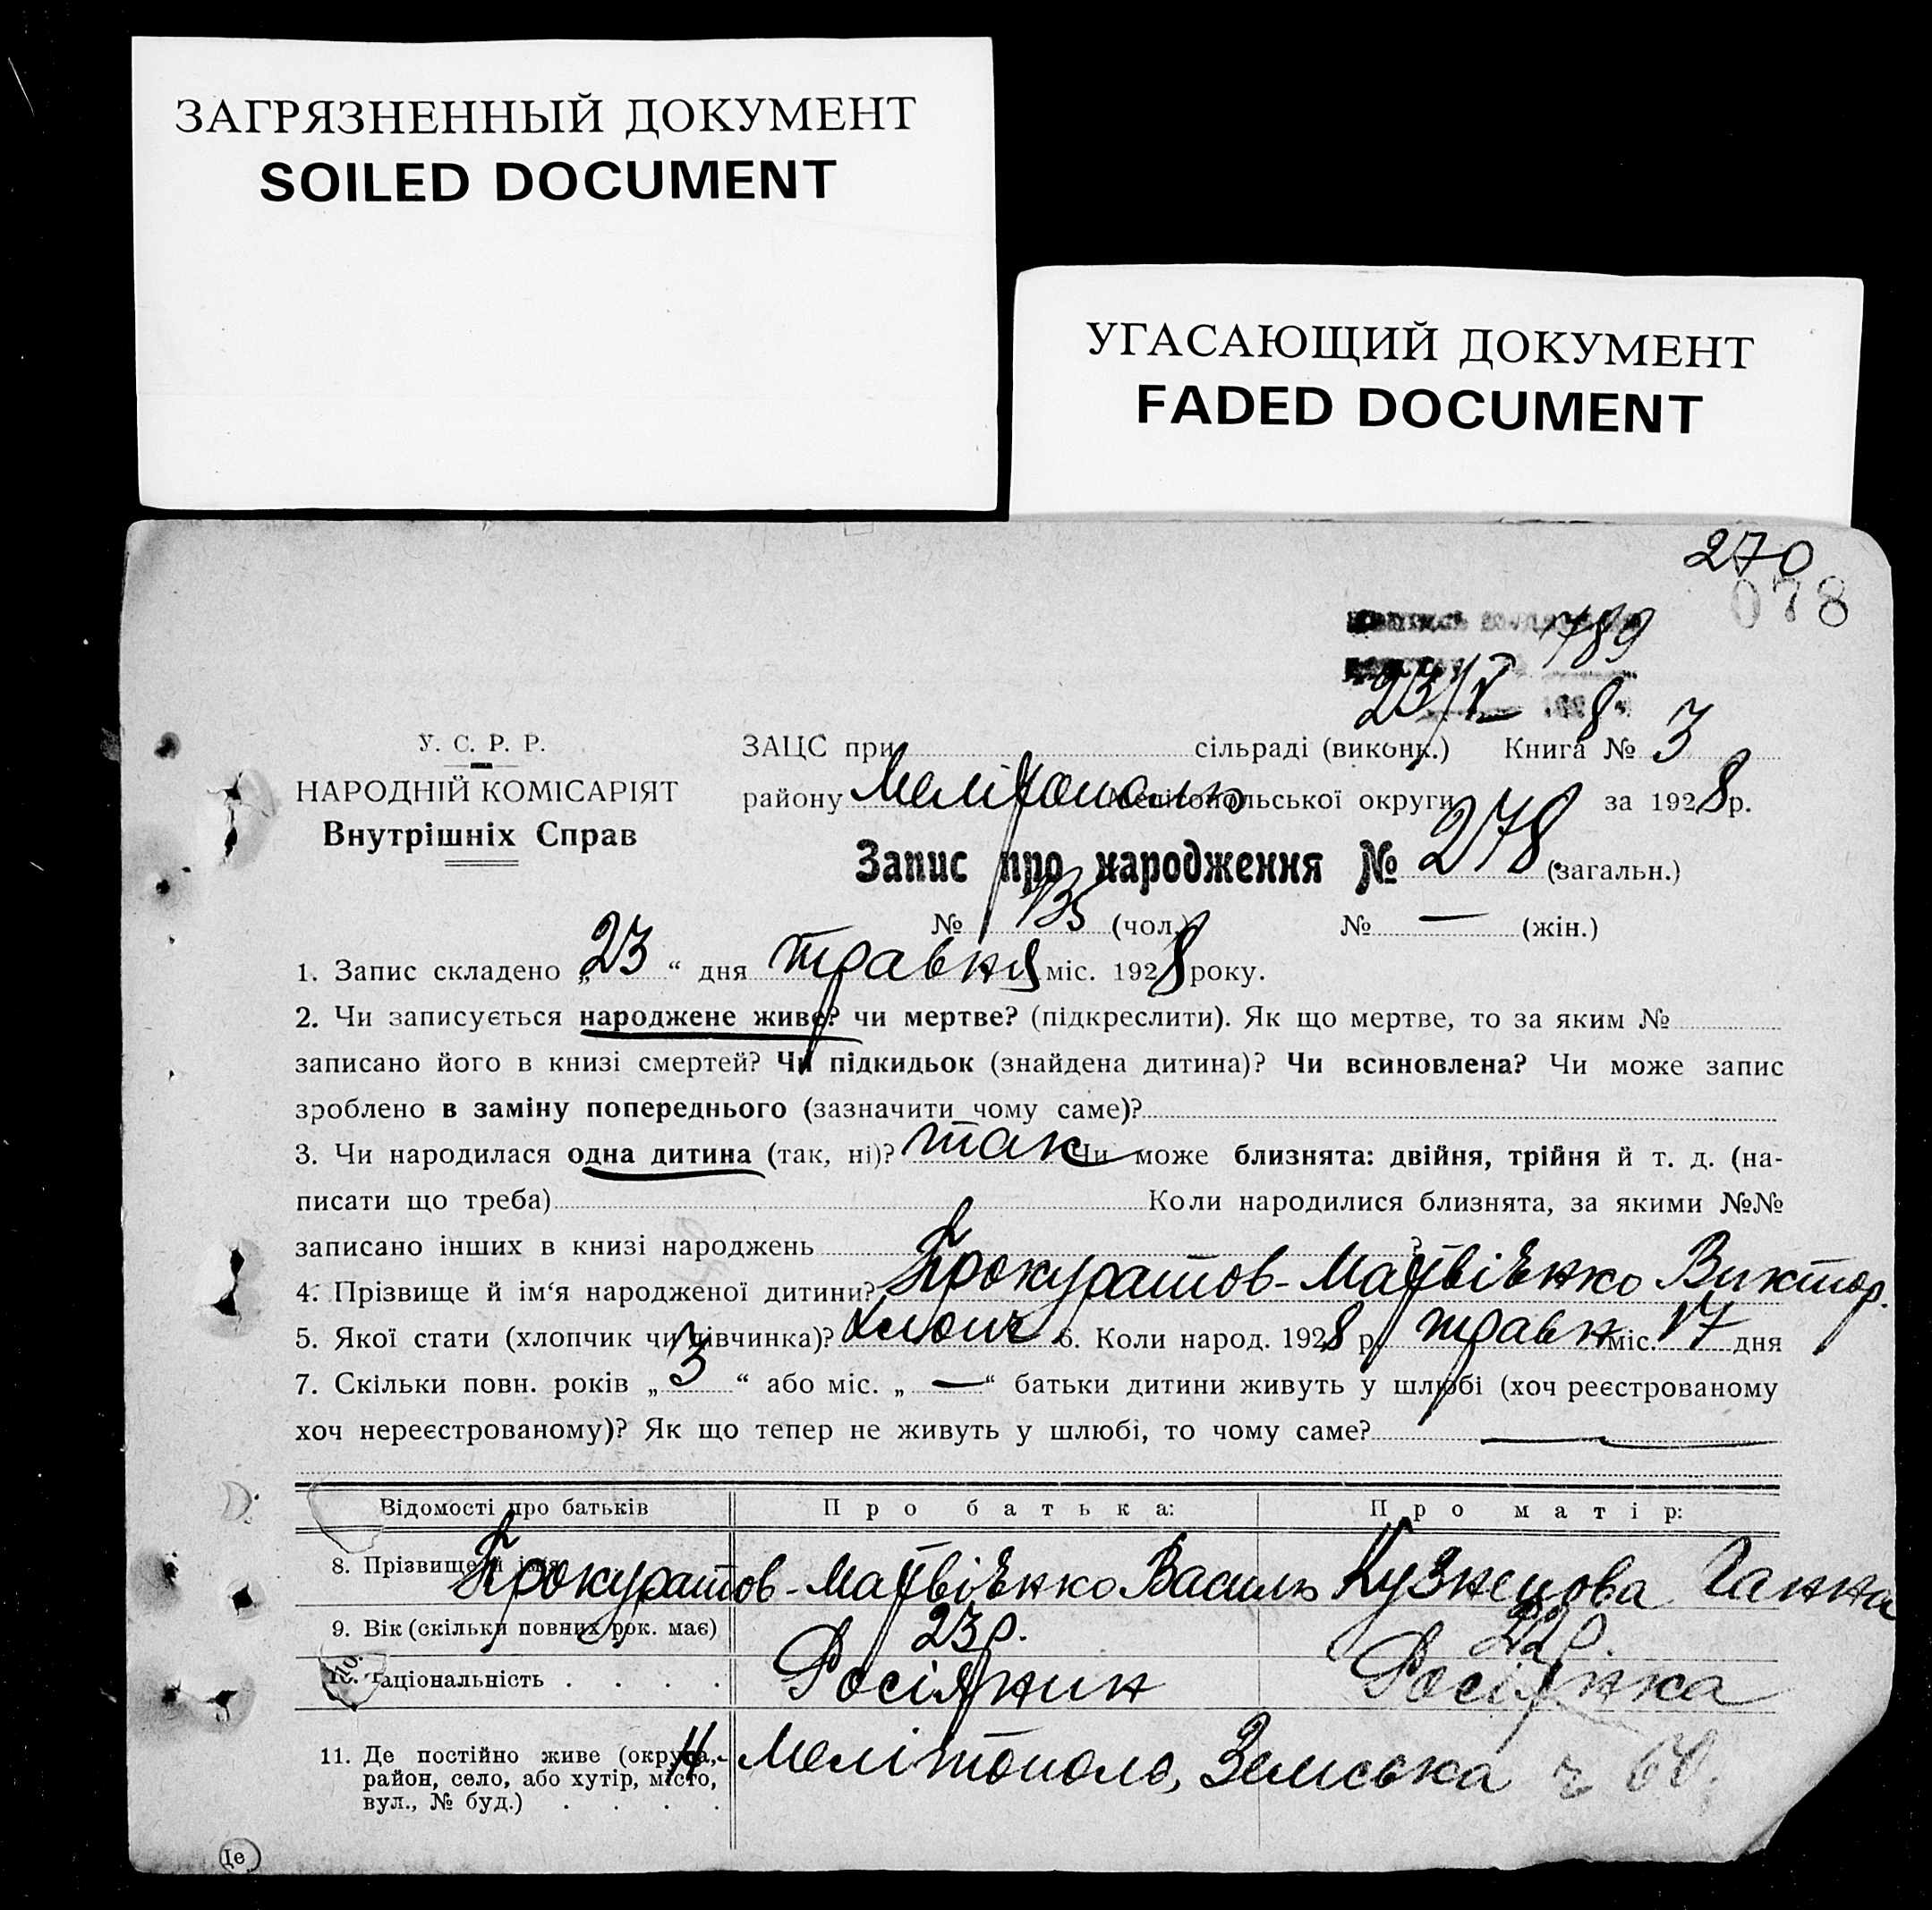 ЗАГРЯЗНЕННЫЙ ДОКУМЕНТ
SOILED DOCUMENT
УГАСАЮЩИЙ ДОКУМЕНТ
FADED DOCUMENT
270
078
789
23/V 8
У. С. Р. Р.
НАРОДНІЙ КОМІСАРІЯТ
Внутрішніх Справ
ЗАЦС при сільраді (виконк.) Книга № 3
району Мелітополь Мелітопольської округи за 1928 р.
Запис про народження № 278 (загальн.)
№ 135 (чол.) № — (жін.)
1. Запис складено „23“ дня травня міс. 1928 року.
2. Чи записується народжене живе? чи мертве? (підкреслити). Як що мертве, то за яким №
записано його в книзі смертей? Чи підкидьок (знайдена дитина)? Чи всиновлена? Чи може запис
зроблено в заміну попереднього (зазначити чому саме)?
3. Чи народилася одна дитина (так, ні)? так Чи може близнята: двійня, трійня й т. д. (на-
писати що треба) Коли народилися близнята, за якими №№
записано інших в книзі народжень ?
4. Прізвище й ім‘я народженої дитини? Прокуратов-Матвієнко Виктор.
5. Якої стати (хлопчик чи дівчинка)? хлопч 6. Коли народ. 1928 р. травн міс. 17 дня
7. Скільки повн. років „3“ або міс. „—“ батьки дитини живуть у шлюбі (хоч реєстрованому
хоч нереєстрованому)? Як що тепер не живуть у шлюбі, то чому саме? —
Відомості про батьків Про батька: Про матір:
8. Прізвище й ім‘я Прокуратов-Матвієнко Василь Кузнецова Ганна
9. Вік (скільки повних рок. має) 23 р. 22 р.
10. Національність . . . . Росіянин Росіянка
11. Де постійно живе (округа, район, село, або хутір, місто, вул., № буд.) . . . . М-Мелітополь, Земська ч 60.